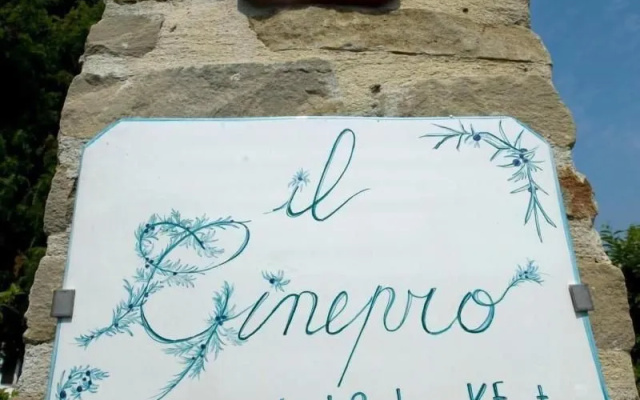 il
Ginepro